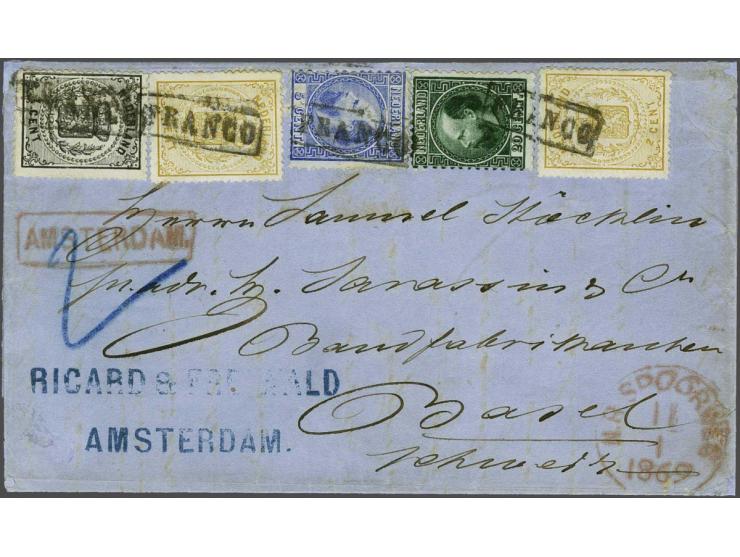 CENT
NEDERLAND
FRANCO
5 CENT
NEDERLAND
FRANCO
NEDERLAND
FRANCO
2 CENT
AMSTERDAM.
2
Herrn Samuel Stöcklin
Sarasin & Cie
Bandfabrikanten
Basel
Schweiz
RICARD & FRE WALD
AMSTERDAM.
N.R. SPOORWEG
11
1
1869